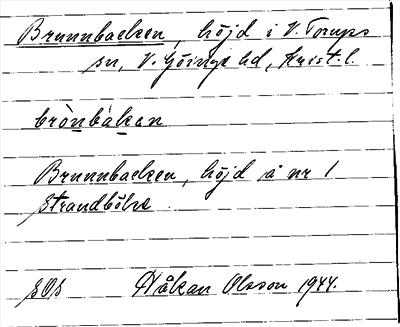 Brunnbacken, höjd i V. Torups
sn, V. Göinge hd, Krist. l.
brònbákan
Brunnbacken, höjd å nr 1
Strandböke
Håkan Olsson 1944.